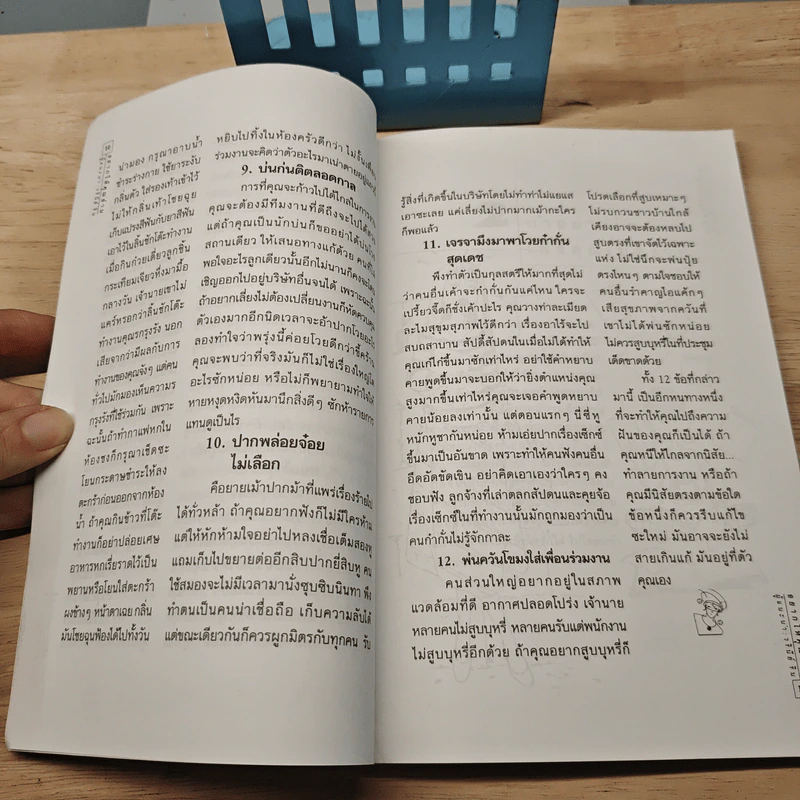 น่ามอง กรุณาอาบน้ำ
ชำระร่างกาย ใช้ยาระงับ
กลิ่นตัว ใส่รองเท้าเช้าไว้
ไม่ให้กลิ่นเท้าโชยฉุย
เก็บแปรงสีฟันกับยาสีฟัน
เอาไว้ในลิ้นชักโต๊ะทำงาน
เมื่อกินก๋วยเตี๋ยวลูกชิ้น
กระเทียมเจียวที่งมามื้อ
กลางวัน เจ้านายเขาไม่
แคร์หรอกว่าลิ้นชักโต๊ะ
ทำงานคุณรกรุงรัง นอก
เสียจากว่ามีผลกับการ
ทำงานของคุณจังๆ แต่คน
ทั่วไปมักมองเห็นความร
กรุงรังที่ใช้ร่วมกัน เพราะ
ฉะนั้นถ้าทำกาแฟหกใน
ห้องชงก็กรุณาเช็ดซะ
โยนกระดาษชำระให้ลง
ตะกร้าก่อนออกจากห้อง
น้ำ ถ้าคุณกินข้าวที่โต๊ะ
ทำงานก็อย่าปล่อยเศษ
อาหารหกเรี่ยราดไว้เป็น
พยานหรือโยนใส่ตะกร้า
ผงข้างๆ หน้าตาเฉย กลิ่น
มันโชยฉุนฟ้องได้ไปทั้งวัน
หยิบไปทิ้งในห้องครัวดีกว่า
ร่วมงานจะคิดว่าตัวอะไรมาเน่าตาย
9. บ่นก่นติตลอดกาล
การที่คุณจะก้าวไปได้ไกลในการ
คุณจะต้องมีทีมงานที่ดีถึงจะไปได้
แต่ถ้าคุณเป็นนักบ่นก็ขออย่าได้บ่น
สถานเดียว ให้เสนอทางแก้ด้วย คนที่
พอใจอะไรลูกเดียวนั้นอีกไม่นานก็คง
เชิญออกไปอยู่บริษัทอื่นจนได้ เพราะ
ถ้าอยากเลี่ยงไม่ต้องเปลี่ยนงานก็หัดควบคุม
ตัวเองมากอีกนิดเวลาจะอ้าปากโวยอะไร
ลองทำใจว่าพรุ่งนี้ค่อยโวยดีกว่าขี้คร้าน
คุณจะพบว่าที่จริงมันก็ไม่ใช่เรื่องใหญ่โต
อะไรซักหน่อย หรือไม่ก็พยายามทำใจให้
หายหงุดหงิดหันมานึกสิ่งดีๆ ซักห้ารายการ
แทนดูเป็นไร
10. ปากพล่อยจ๋อย
ไม่เลือก
คือยายเม้าปากม้าที่แพร่เรื่องร้ายไป
ได้ทั่วหล้า ถ้าคุณอยากฟังก็ไม่มีใครห้าม
แต่ให้หักห้ามใจอย่าไปหลงเชื่อเต็มสองหู
แถมเก็บไปขยายต่ออีกสิบปากยี่สิบหู คน
ใช้สมองจะไม่มีเวลามานั่งซุบซิบนินทา พึง
ทำตนเป็นคนน่าเชื่อถือ เก็บความลับได้
แต่ขณะเดียวกันก็ควรผูกมิตรกับทุกคน รับ
รู้สิ่งที่เกิดขึ้นในบริษัทโดยไม่ทำท่าไม่แยแส
เอาซะเลย แค่เลี่ยงไม่ปากมากเม้ากะใคร
ก็พอแล้ว
11. เจรจามึงมาพาโวยก๋ากั่น
สุดเดช
พึงทำตัวเป็นกุลสตรีให้มากที่สุดไม่
ว่าคนอื่นเค้าจะก๋ากั่นกันแค่ไหน ใครจะ
เปรี้ยวจี๊ดก็ชั่งเค้าปะไร คุณวางท่าละเมียด
ละไมสุขุมสุภาพไว้ดีกว่า เรื่องอาไร้จะไป
สบถสาบาน สัปดี้สัปดนในเมื่อไม่ได้ทำให้
คุณเก๋ไก๋ขึ้นมาซักเท่าไหร่ อย่าใช้คำหยาบ
คายพูดขึ้นมาจะบอกให้ว่ายิ่งตำแหน่งคุณ
สูงมากขึ้นเท่าไหร่คุณจะเจอคำพูดหยาบ
คายน้อยลงเท่านั้น แต่ตอนแรกๆ นี่ซี่หู
หนักหูชากันหน่อย ห้ามเอ่ยปากเรื่องเซ็กซ์
ขึ้นมาเป็นอันขาด เพราะทำให้คนฟังคนอื่น
อึดอัดขัดเขิน อย่าคิดเอาเองว่าใครๆ คง
ชอบฟัง ลูกจ้างที่เล่าตลกสัปดนและคุยจ้อ
เรื่องเซ็กซ์ในที่ทำงานนั้นมักถูกมองว่าเป็น
คนก๋ากั่นไม่รู้จักกาละ
12. พ่นควันโขมงใส่เพื่อนร่วมงาน
คนส่วนใหญ่อยากอยู่ในสภาพ
แวดล้อมที่ดี อากาศปลอดโปร่ง เจ้านาย
หลายคนไม่สูบบุหรี่ หลายคนรับแต่พนักงาน
ไม่สูบบุหรี่อีกด้วย ถ้าคุณอยากสูบบุหรี่ก็
โปรดเลือกที่สูบเหมาะๆ
ไม่รบกวนชาวบ้านใกล้
เคียงอาจจะต้องหลบไป
สูบตรงที่เขาจัดไว้เฉพาะ
แห่ง ไม่ใช่นึกจะพ่นปุ๋ย
ตรงไหนๆ ตามใจชอบให้
คนอื่นรำคาญไอแค้กๆ
เสียสุขภาพจากควันที่
เขาไม่ได้พ่นซักหน่อย
ไม่ควรสูบบุหรี่ในที่ประชุม
เด็ดขาดด้วย
ทั้ง 12 ข้อที่กล่าว
มานี้ เป็นอีกหนทางหนึ่ง
ที่จะทำให้คุณไปถึงความ
ฝันของคุณก็เป็นได้ ถ้า
คุณหนีให้ไกลจากนิสัย...
ทำลายการงาน หรือถ้า
คุณมีนิสัยตรงตามข้อใด
ข้อหนึ่งก็ควรรีบแก้ไข
ซะใหม่ มันอาจจะยังไม่
สายเกินแก้ มันอยู่ที่ตัว
คุณเอง